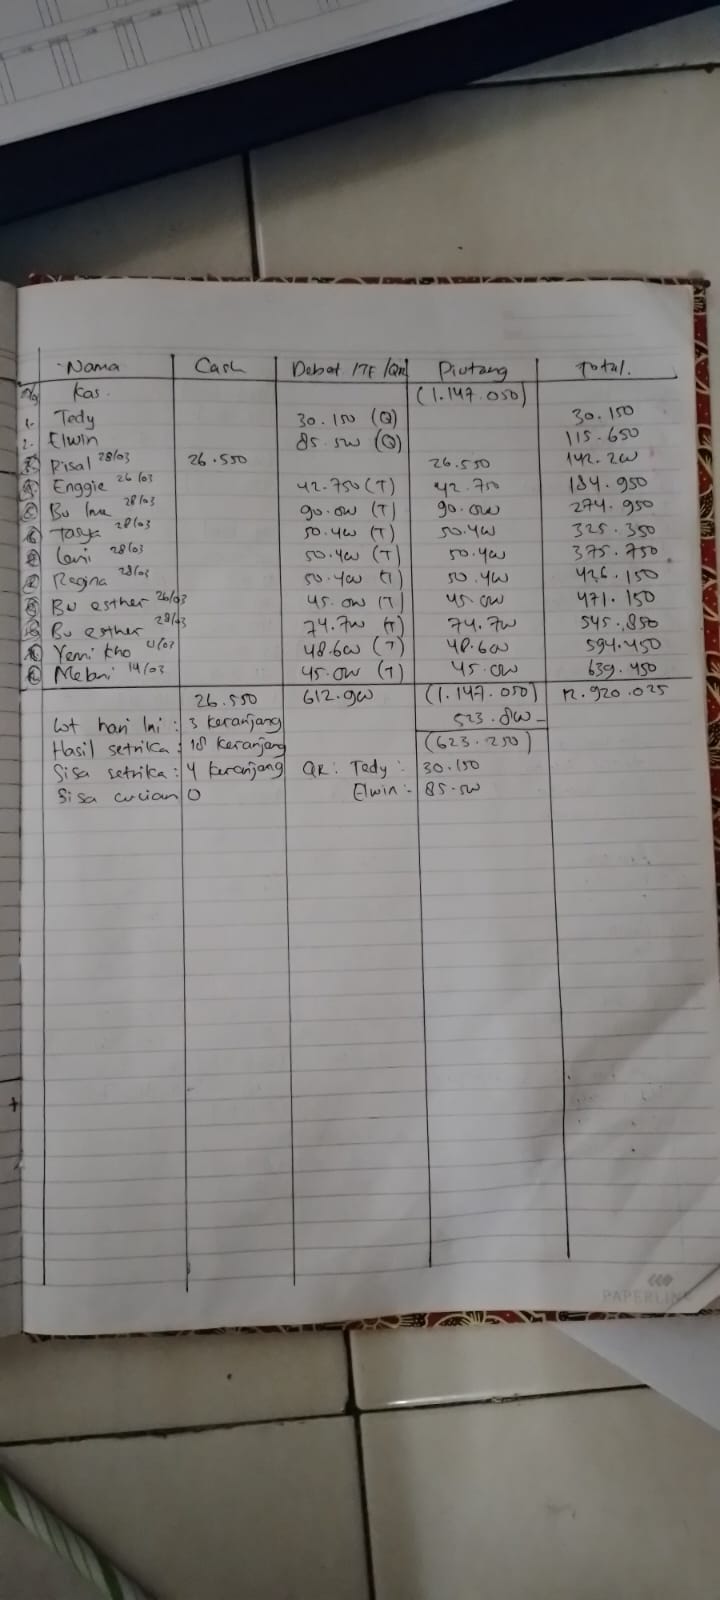 Nama Cash Debet /TF /QR Piutang Total.
Kas. (1.147.050)
1. Tedy 30.150 (Q) 30.150
2. Elwin 85.500 (Q) 115.650
3 Risal 28/03 26.550 26.550 142.200
4 Enggie 26/03 42.750 (T) 42.750 184.950
5 Bu 28/03 90.000 (T) 90.000 274.950
6 Tasya 28/03 50.400 (T) 50.400 325.350
28/03 50.400 (T) 50.400 375.750
Regina 28/03 50.400 (T) 50.400 426.150
Bu esther 26/03 45.000 (T) 45.000 471.150
Bu esther 28/03 74.700 (T) 74.700 545.850
Yemi Kho 48.600 (T) 48.600 594.450
Melani 14/03 45.000 (T) 45.000 639.450
26.550 612.900 (1.147.050) 12.920.025
hari Ini : 3 keranjang 523.800 -
Hasil setrika : 18 keranjang (623.250)
Sisa setrika : 4 keranjang QR : Tedy : 30.150
Sisa cucian 0 Elwin : 85.500
PAPERLINE